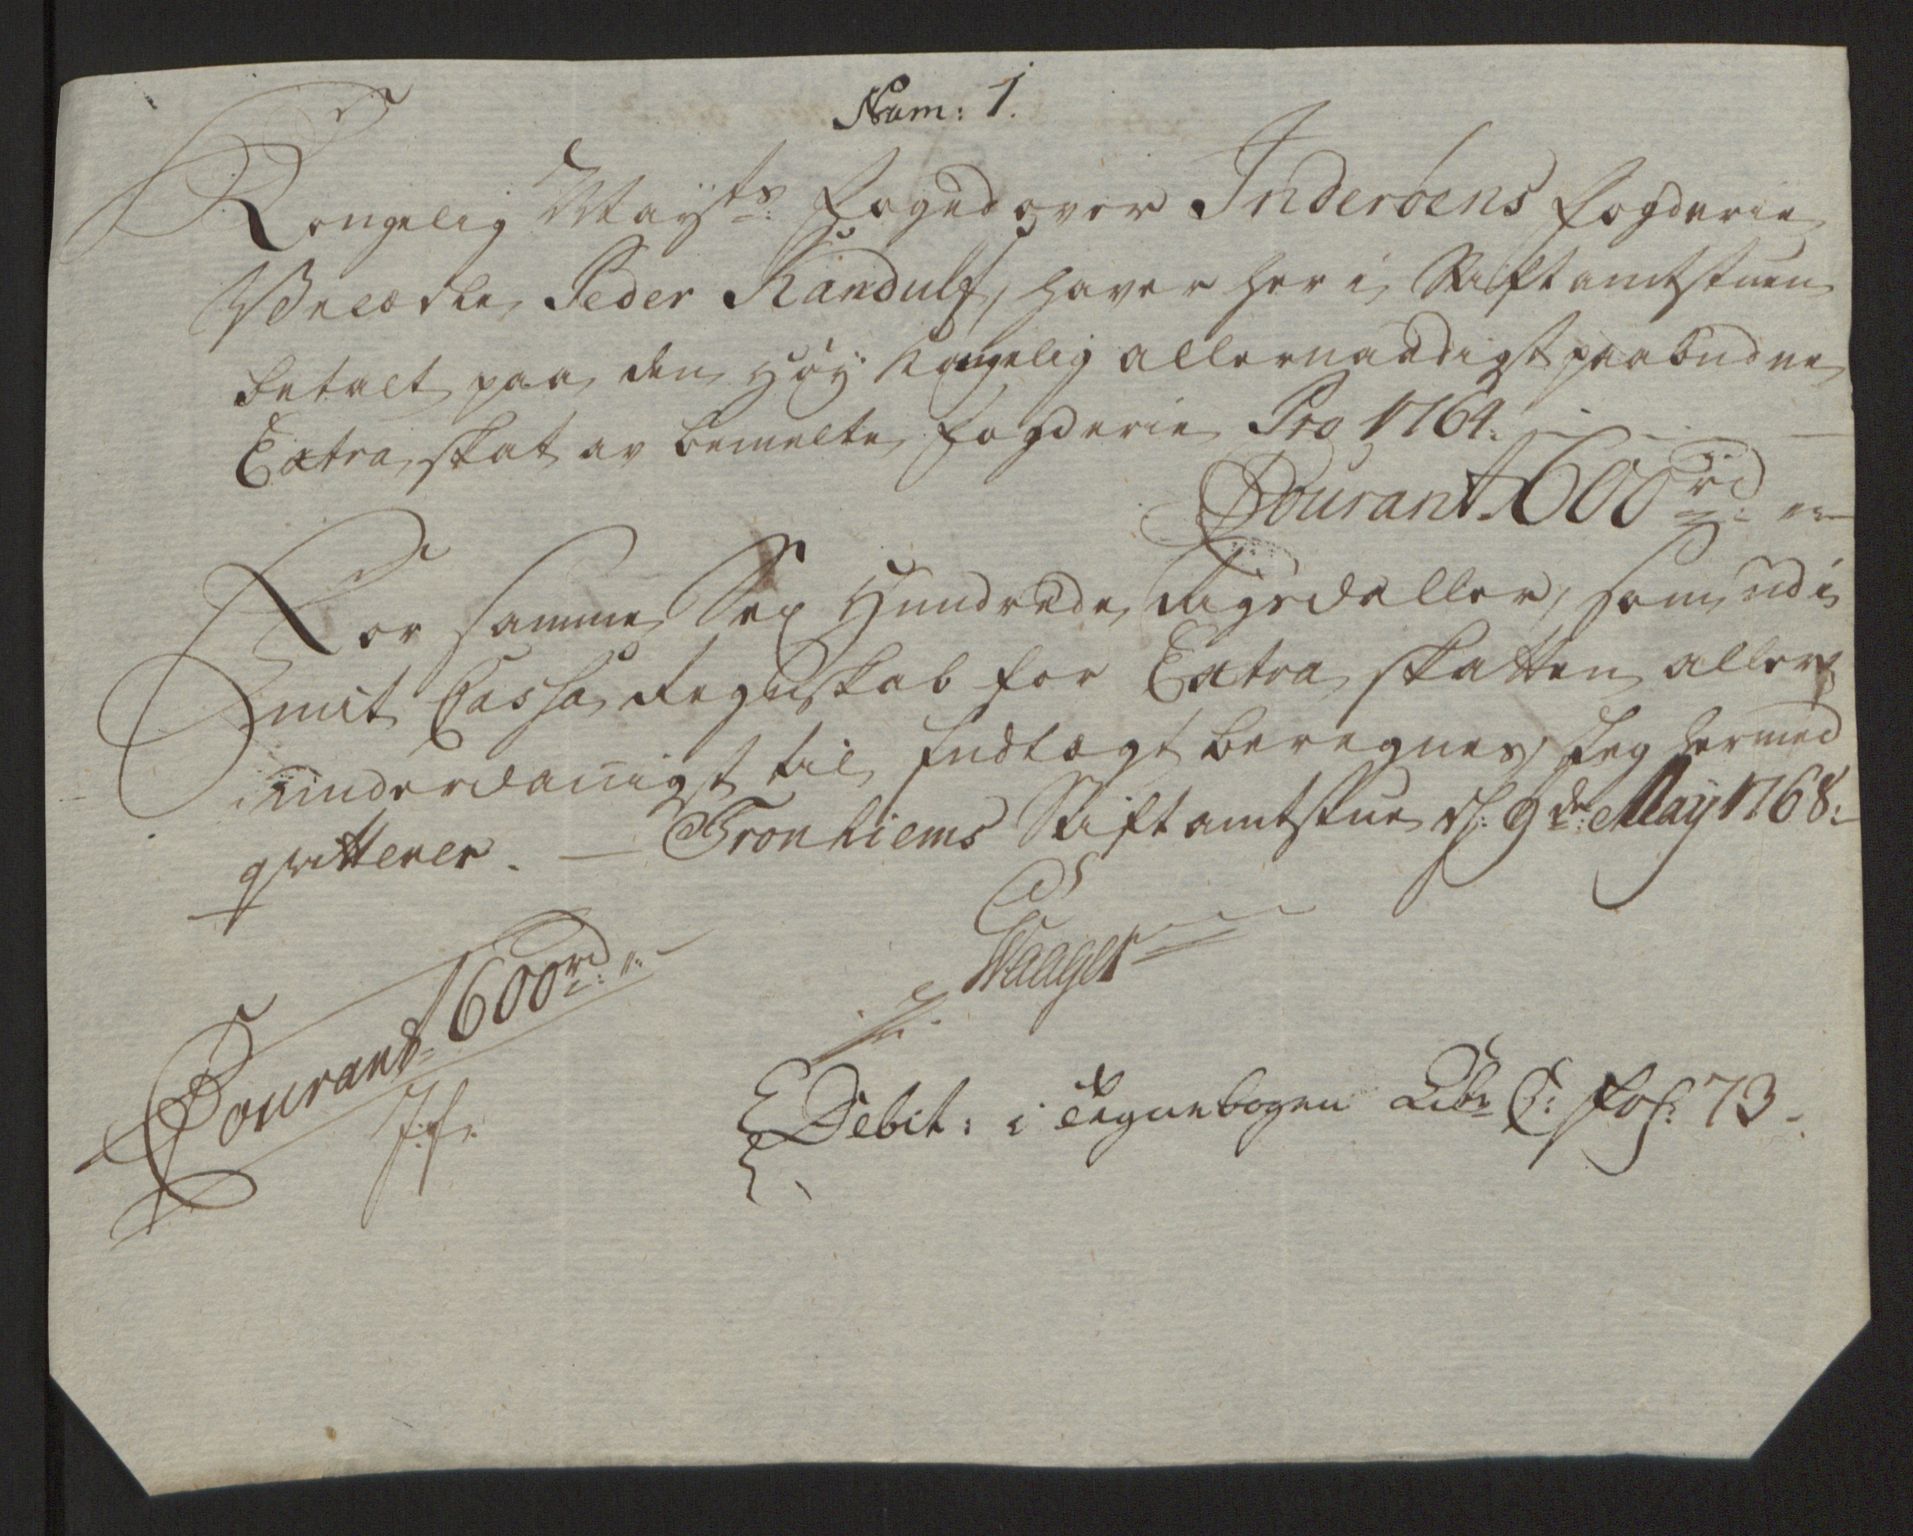 Num: 1.
Kongelig Mayts: Foged over Inderöens Fogderie
Velædle Peder Randulf, haver her i Stiftamtstuen
betalt paa den Høy Kongelig allernaadigst paabudne
Extra skat av bemelte Fogderie Pro 1764. — — —
Courant. 600 rd: "—
For samme Sex Hundrede Rigsdaller, som udi
mit Cassa Regnskab for Extra skatten aller
underdanigst til Indtægt beregnes, Jeg hermed
qvitterer. — Tronhiems Stiftamtstue d: 9de: May 1768.
Courant 600 rd: "—
Debit: i Tegnebogen Libr C: Fol: 73.